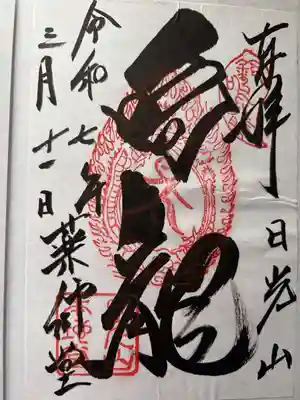 奉拝 日光山
鳴龍
令和七年
三月十一日
薬師堂